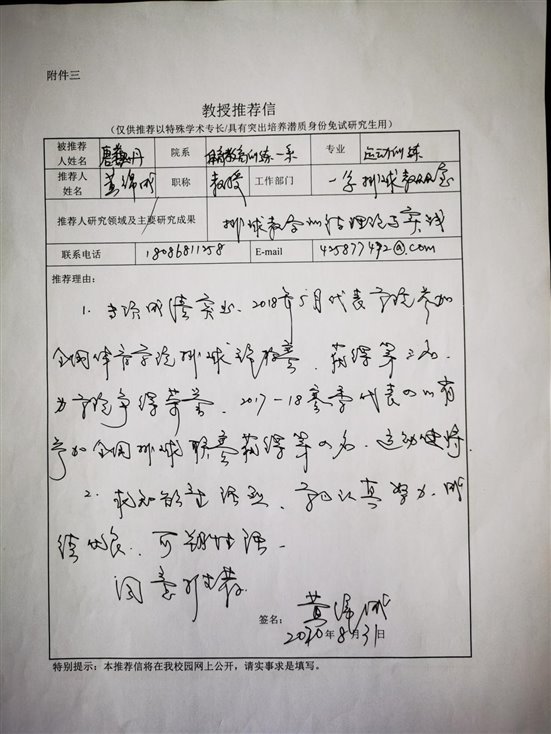 附件三
教授推荐信
（仅供推荐以特殊学术专长/具有突出培养潜质身份免试研究生用）
被推荐人姓名 唐 丹 院系 体育教育训练一系 专业 运动训练
推荐人姓名 黄 职称 教授 工作部门 一系排球教研室
推荐人研究领域及主要研究成果 排球教学训练理论与实践
联系电话 18086811258 E-mail 425877492@.com
推荐理由：
1. 专项成绩突出. 2018年5月代表学院参加
全国体育学院排球锦标赛、获得第三名.
为学院争得荣誉. 2017-18赛季代表四川省
参加全国排球联赛获得第四名. 运动健将.
2. 求知欲望强烈、学习认真努力. 成
绩优良、可塑性强.
同意推荐.
签名： 黄
2020年8月31日
特别提示：本推荐信将在我校园网上公开，请实事求是填写。